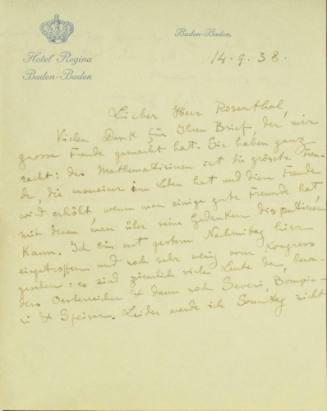 Hotel Regina
Baden-Baden
Baden-Baden
14.9.38.
Lieber Herr Rosenthal,
Vielen Dank für Ihren Brief, der mir
grosse Freude gemacht hat. Sie haben ganz
recht: das Mathematisieren ist die grösste Freu-
de, die man im Leben hat und diese Freude
wird erhöht, wenn man einige gute Freunde hat
mit denen man über seine Gedanken disputieren
kann. Ich bin erst gestern Nachmittag hier
eingetroffen und noch sehr wenig vom Kongress
gesehen: es sind ziemlich viele Leute da, beson-
ders Oesterreicher & dann noch Severi, Bompia-
ni & Speiser. Leider werde ich Sonntag nicht